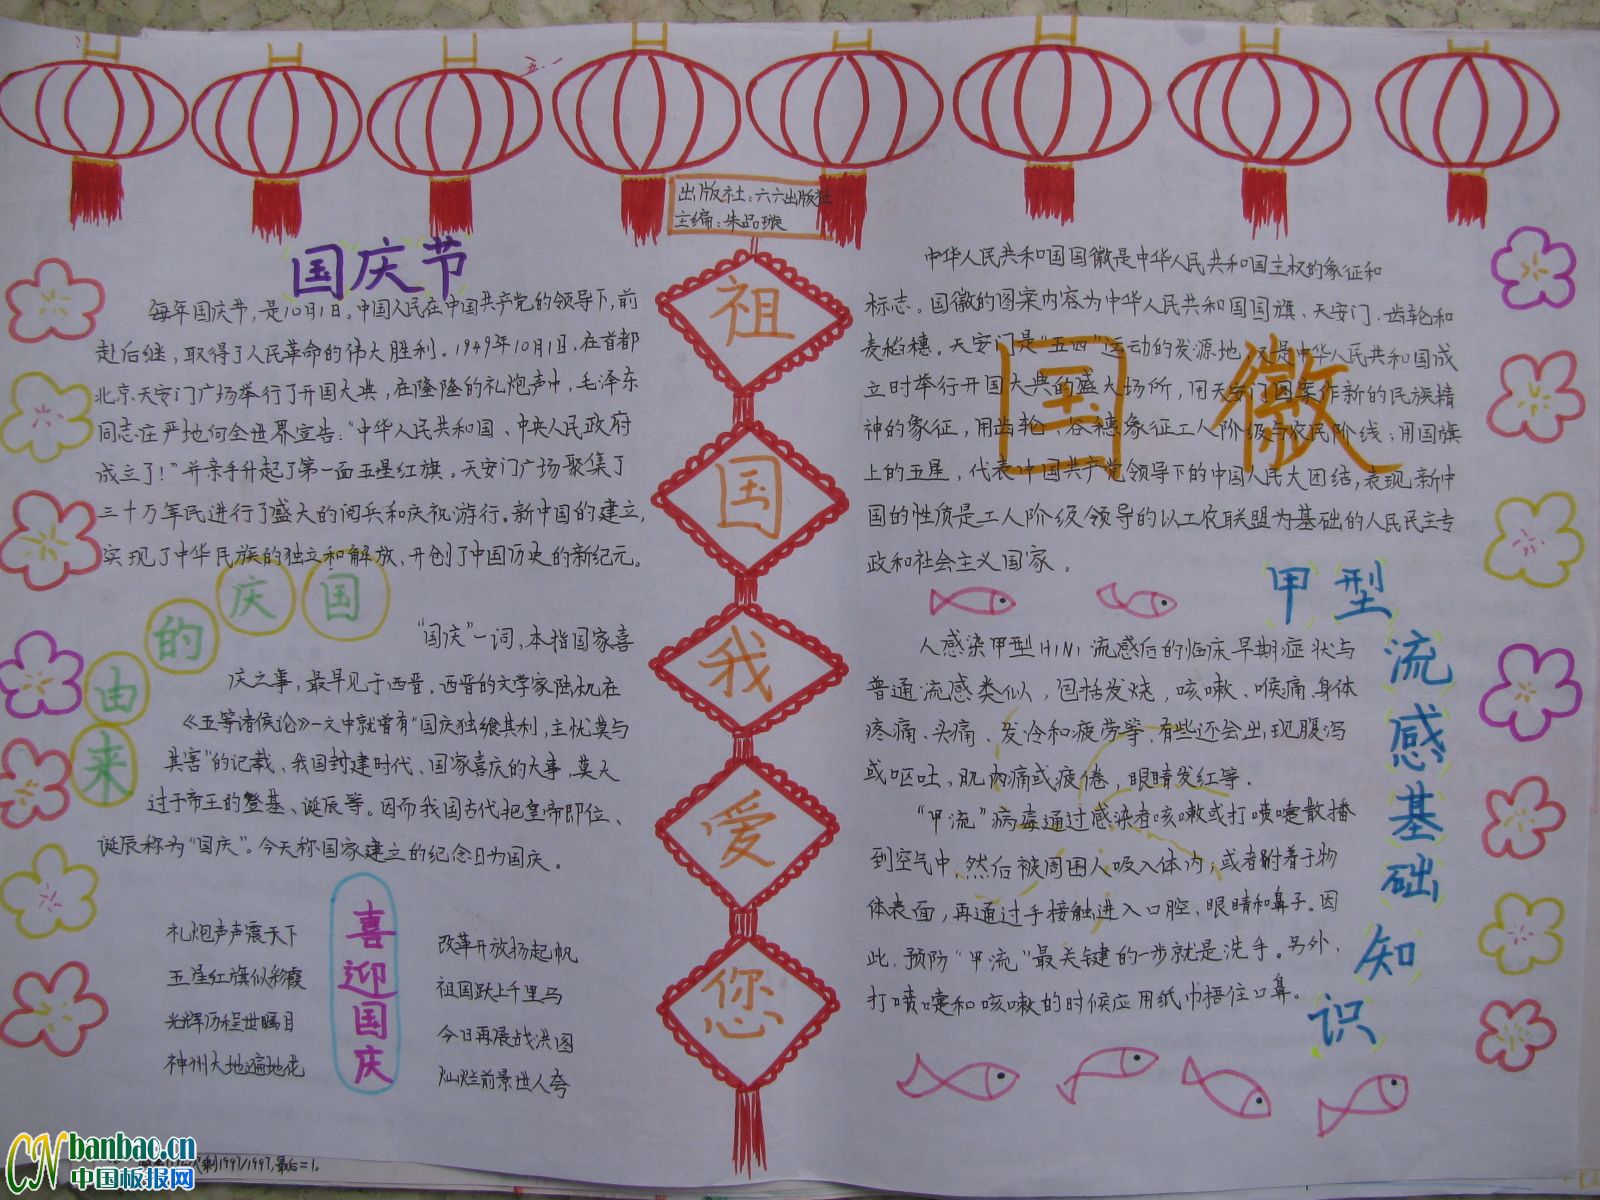 五.一
出版社:六六出版社
主编:朱品璇
国庆节
每年国庆节,是10月1日。中国人民在中国共产党的领导下,前
赴后继,取得了人民革命的伟大胜利。1949年10月1日,在首都
北京天安门广场举行了开国大典,在隆隆的礼炮声中,毛泽东
同志庄严地向全世界宣告:"中华人民共和国、中央人民政府
成立了!"并亲手升起了第一面五星红旗。天安门广场聚集了
三十万军民进行了盛大的阅兵和庆祝游行。新中国的建立,
实现了中华民族的独立和解放,开创了中国历史的新纪元。
国庆的由来
"国庆"一词,本指国家喜
庆之事,最早见于西晋。西晋的文学家陆机在
《五等诸侯论》一文中就曾有"国庆独飨其利,主忧莫与
其害"的记载、我国封建时代、国家喜庆的大事,莫大
过于帝王的登基、诞辰等。因而我国古代把皇帝即位、
诞辰称为"国庆"。今天称国家建立的纪念日为国庆。
喜迎国庆
礼炮声声震天下
五星红旗似彩霞
光辉历程世瞩目
神州大地遍地花
改革开放扬起帆
祖国跃上千里马
今日再展战洪图
灿烂前景进人夸
祖
国
我
爱
您
国徽
中华人民共和国国徽是中华人民共和国主权的象征和
标志。国徽的图案内容为中华人民共和国国旗、天安门、齿轮和
麦稻穗。天安门是"五四"运动的发源地,又是中华人民共和国成
立时举行开国大典的盛大场所,用天安门图案作新的民族精
神的象征,用齿轮、谷穗象征工人阶级与农民阶级,用国旗
上的五星,代表中国共产党领导下的中国人民大团结,表现新中
国的性质是工人阶级领导的以工农联盟为基础的人民民主专
政和社会主义国家。
甲型流感基础知识
人感染甲型H1N1流感后的临床早期症状与
普通流感类似,包括发烧,咳嗽、喉痛、身体
疼痛、头痛、发冷和疲劳等,有些还会出现腹泻
或呕吐,肌肉痛或疲倦,眼睛发红等.
"甲流"病毒通过感染者咳嗽或打喷嚏散播
到空气中,然后被周围人吸入体内;或者附着于物
体表面,再通过手接触进入口腔、眼睛和鼻子。因
此,预防"甲流"最关键的一步就是洗手。另外,
打喷嚏和咳嗽的时候应用纸巾捂住口鼻。
CN banbao.cn
中国板报网
剩1997/1997,最后=1.